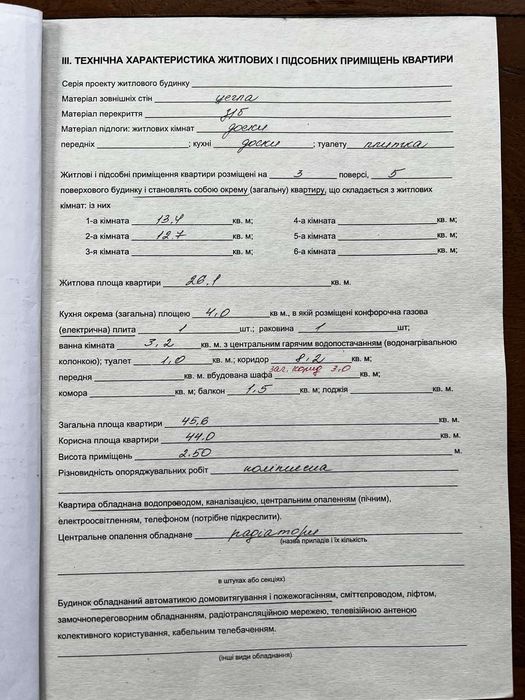 III. ТЕХНІЧНА ХАРАКТЕРИСТИКА ЖИТЛОВИХ І ПІДСОБНИХ ПРИМІЩЕНЬ КВАРТИРИ
Серія проекту житлового будинку
Матеріал зовнішніх стін цегла
Матеріал перекриття з/б
Матеріал підлоги: житлових кімнат доски
передніх ; кухні доски ; туалету плитка
Житлові і підсобні приміщення квартири розміщені на 3 поверсі, 5
поверхового будинку і становлять собою окрему (загальну) квартиру, що складається з житлових
кімнат: із них
1-а кімната 13,4 кв. м; 4-а кімната кв. м;
2-а кімната 12.7 кв. м; 5-а кімната кв. м;
3-я кімната кв. м; 6-а кімната кв. м;
Житлова площа квартири 26.1 кв. м.
Кухня окрема (загальна) площею 4,0 кв м., в якій розміщені конфорочна газова
(електрична) плита 1 шт.; раковина 1 шт;
ванна кімната 3,2 кв. м. з центральним гарячим водопостачанням (водонагрівальною
колонкою); туалет 1,0 кв. м.; коридор 8,2 кв. м;
заг. корид 3,0
передня кв. м. вбудована шафа кв. м;
комора кв. м; балкон 1,5 кв. м; лоджія кв. м.
Загальна площа квартири 45,6 кв. м.
Корисна площа квартири 44.0 кв. м.
Висота приміщень 2.50 м.
Різновидність опоряджувальних робіт поліпшена
Квартира обладнана водопроводом, каналізацією, центральним опаленням (пічним),
електроосвітленням, телефоном (потрібне підкреслити).
Центральне опалення обладнане радіатори
(назва приладів і їх кількість
в штуках або секціях)
Будинок обладнаний автоматикою домовитягування і пожежогасінням, сміттєпроводом, ліфтом,
замочнопереговорним обладнанням, радіотрансляційною мережею, телевізійною антеною
колективного користування, кабельним телебаченням.
(інші види обладнання)